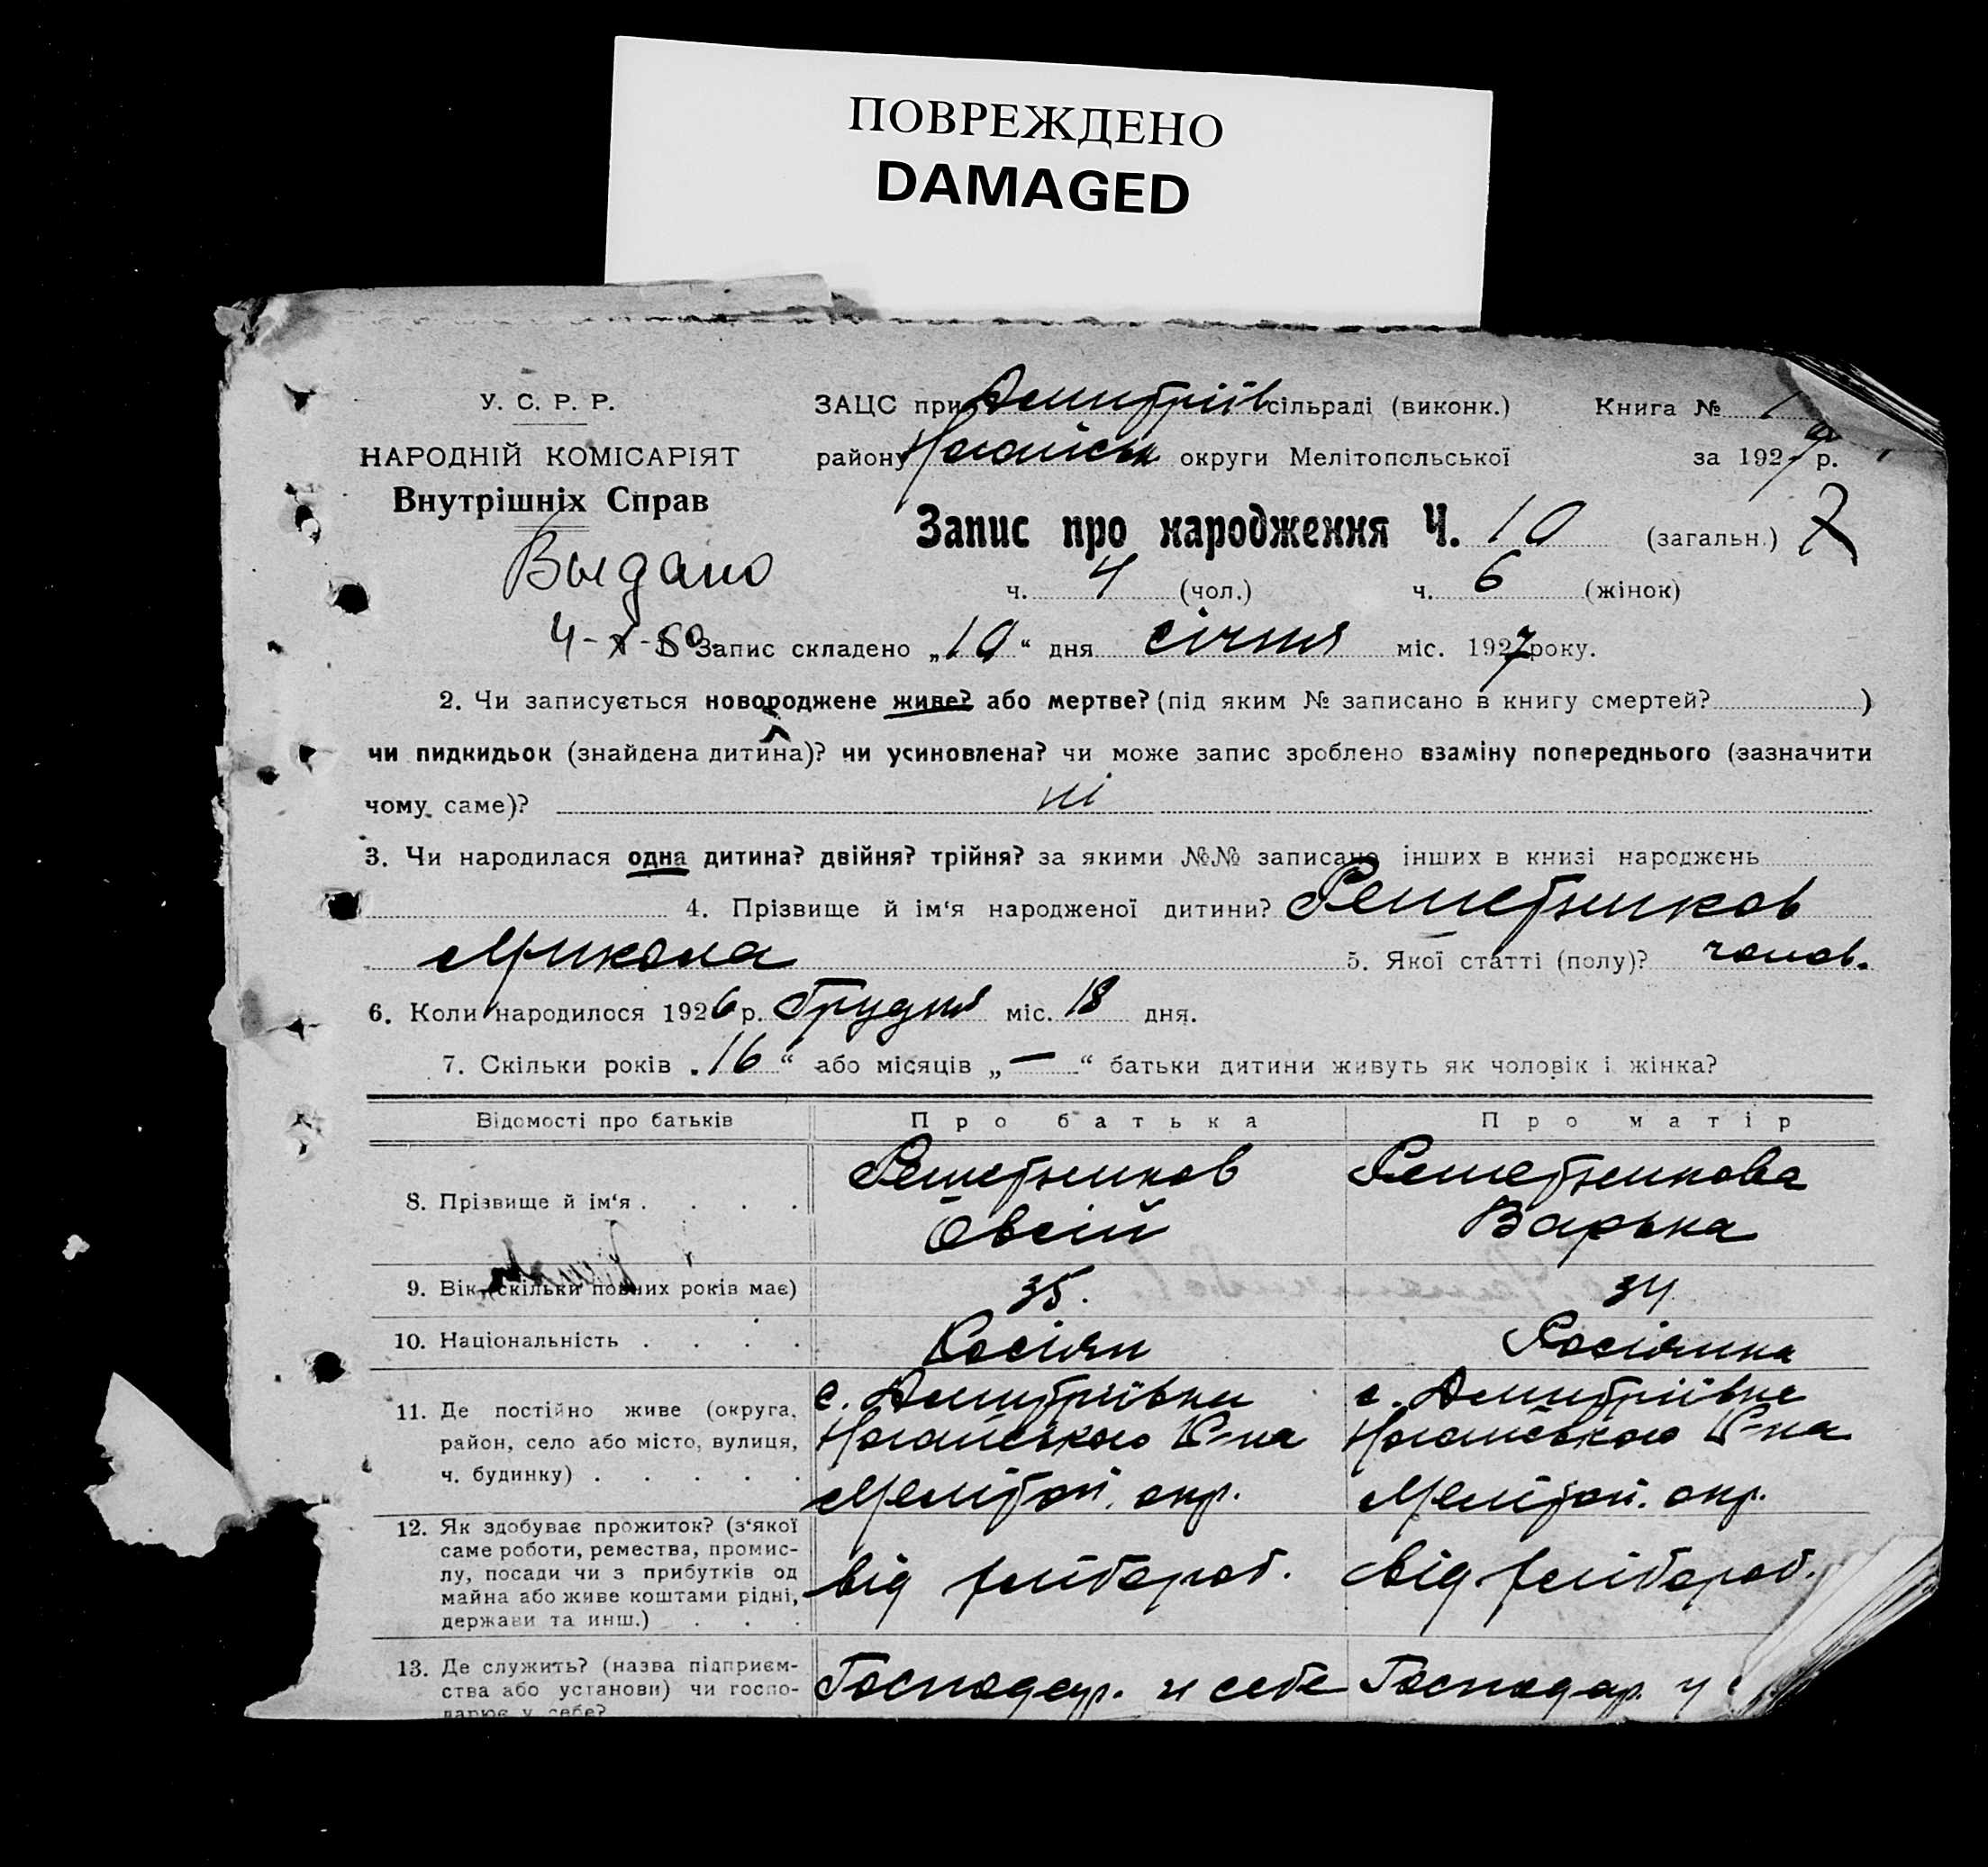 ПОВРЕЖДЕНО
DAMAGED
У. С. Р. Р.
НАРОДНІЙ КОМІСАРІЯТ
Внутрішніх Справ
Выдано
4-X-50
ЗАЦС при Дмитріїв сільраді (виконк.) Книга № 1
району Ногайськ округи Мелітопольської за 1927 р.
Запис про народження Ч. 10 (загальн.) 7
ч. 4 (чол.) ч. 6 (жінок)
Запис складено „10“ дня січня міс. 1927 року.
2. Чи записується новороджене живе? або мертве? (під яким № записано в книгу смертей? )
чи пидкидьок (знайдена дитина)? чи усиновлена? чи може запис зроблено взаміну попереднього (зазначити
чому саме)? ні
3. Чи народилася одна дитина? двійня? трійня? за якими №№ записано інших в книзі народжень
4. Прізвище й ім‘я народженої дитини? Решетников
Микола 5. Якої статті (полу)? чолов.
6. Коли народилося 1926 р. Грудня міс. 18 дня.
7. Скільки років „16“ або місяців „—“ батьки дитини живуть як чоловік і жінка?
Відомості про батьків Про батька Про матір
8. Прізвище й ім‘я . . . . Решетников Решетникова
Овсій Варька
9. Вік (скільки повних років має) 35. 34
10. Національність . . . . Росіян Росіянка
11. Де постійно живе (округа, с. Дмитріївки с. Дмитрівке
район, село або місто, вулиця, Ногайського Р-на Ногайського Р-на
ч. будинку) . . . . . Меліто п. окр. Мелітоп. окр.
12. Як здобуває прожиток? (з‘якої
саме роботи, ремества, промис-
лу, посади чи з прибутків од від хлібороб. від хлібороб.
майна або живе коштами рідні,
держави та инш.) . . .
13. Де служить? (назва підприєм-
ства або установи) чи госпо- Господар. у себе Господар. у
дарює у себе?